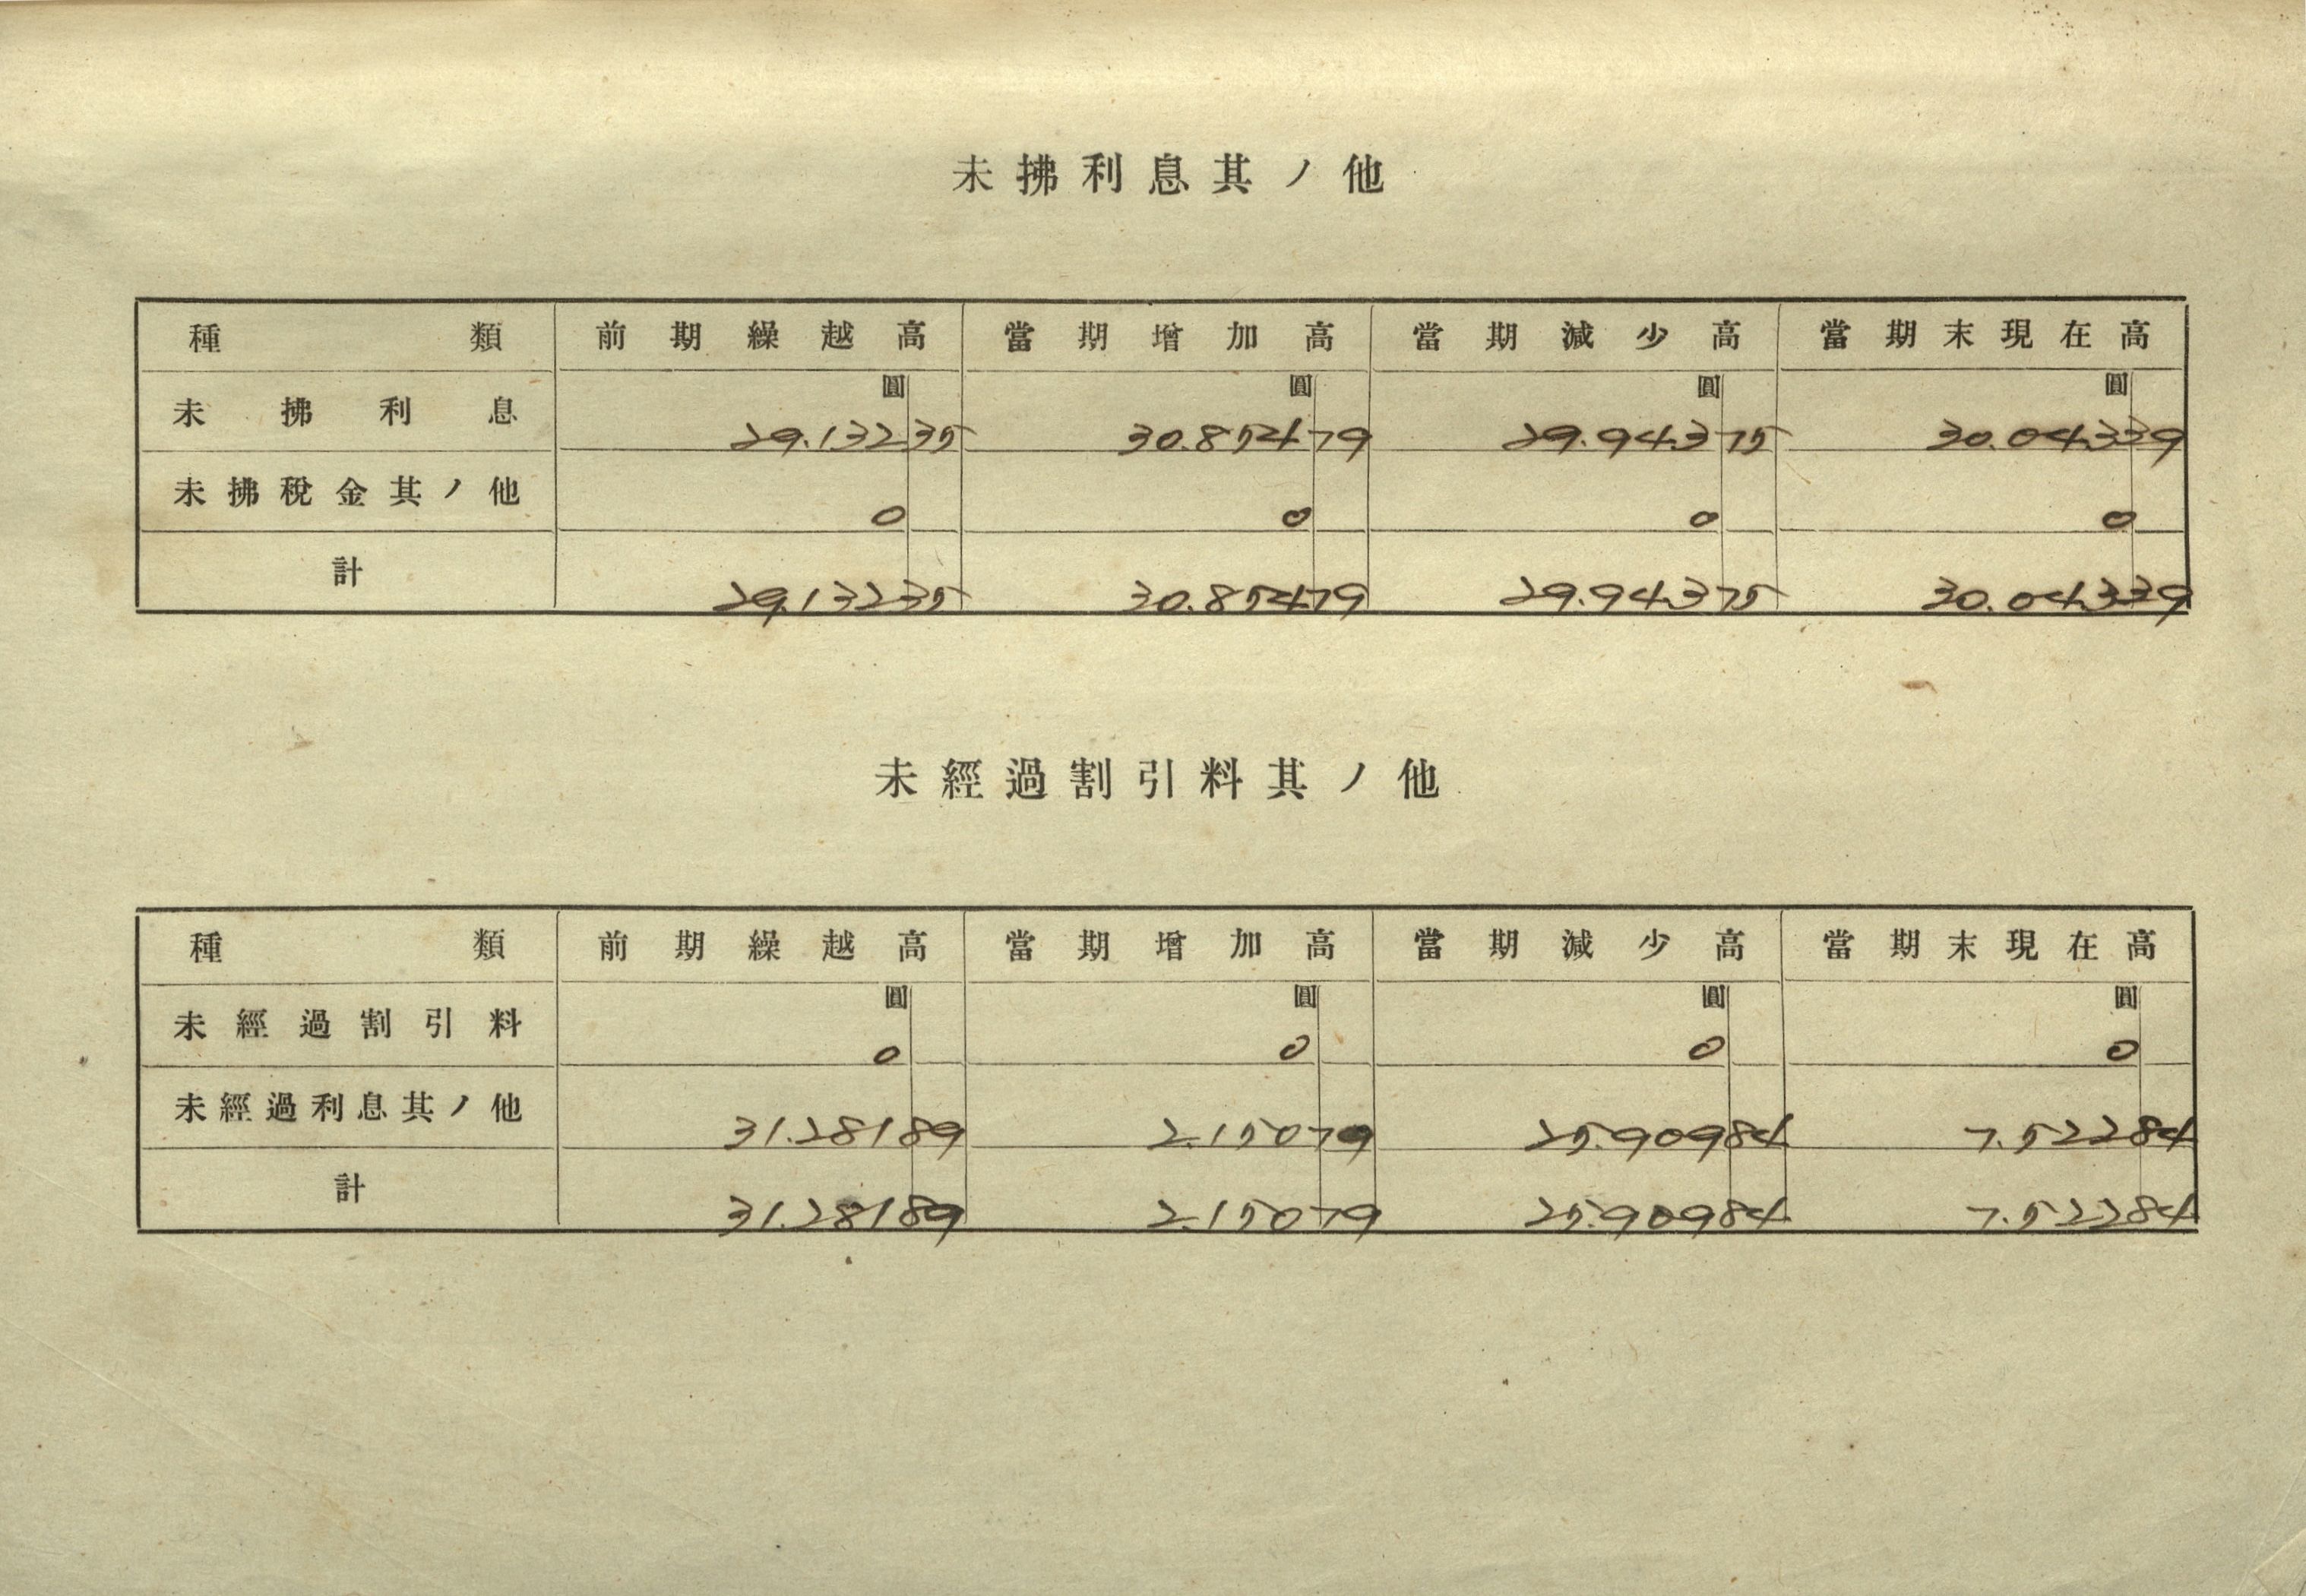 未拂利息其ノ他
種類 前期繰越高 當期增加高 當期減少高 當期末現在高
圓 圓 圓 圓
未拂利息 29.132 35 30.854 79 29.943 75 30.043 39
未拂稅金其ノ他 0 0 0 0
計 29.132 35 30.854 79 29.943 75 30.043 39
未經過割引料其ノ他
種類 前期繰越高 當期增加高 當期減少高 當期末現在高
圓 圓 圓 圓
未經過割引料 0 0 0 0
未經過利息其ノ他 31.281 89 2.150 79 25.909 84 7.522 84
計 31.281 89 2.150 79 25.909 84 7.522 84